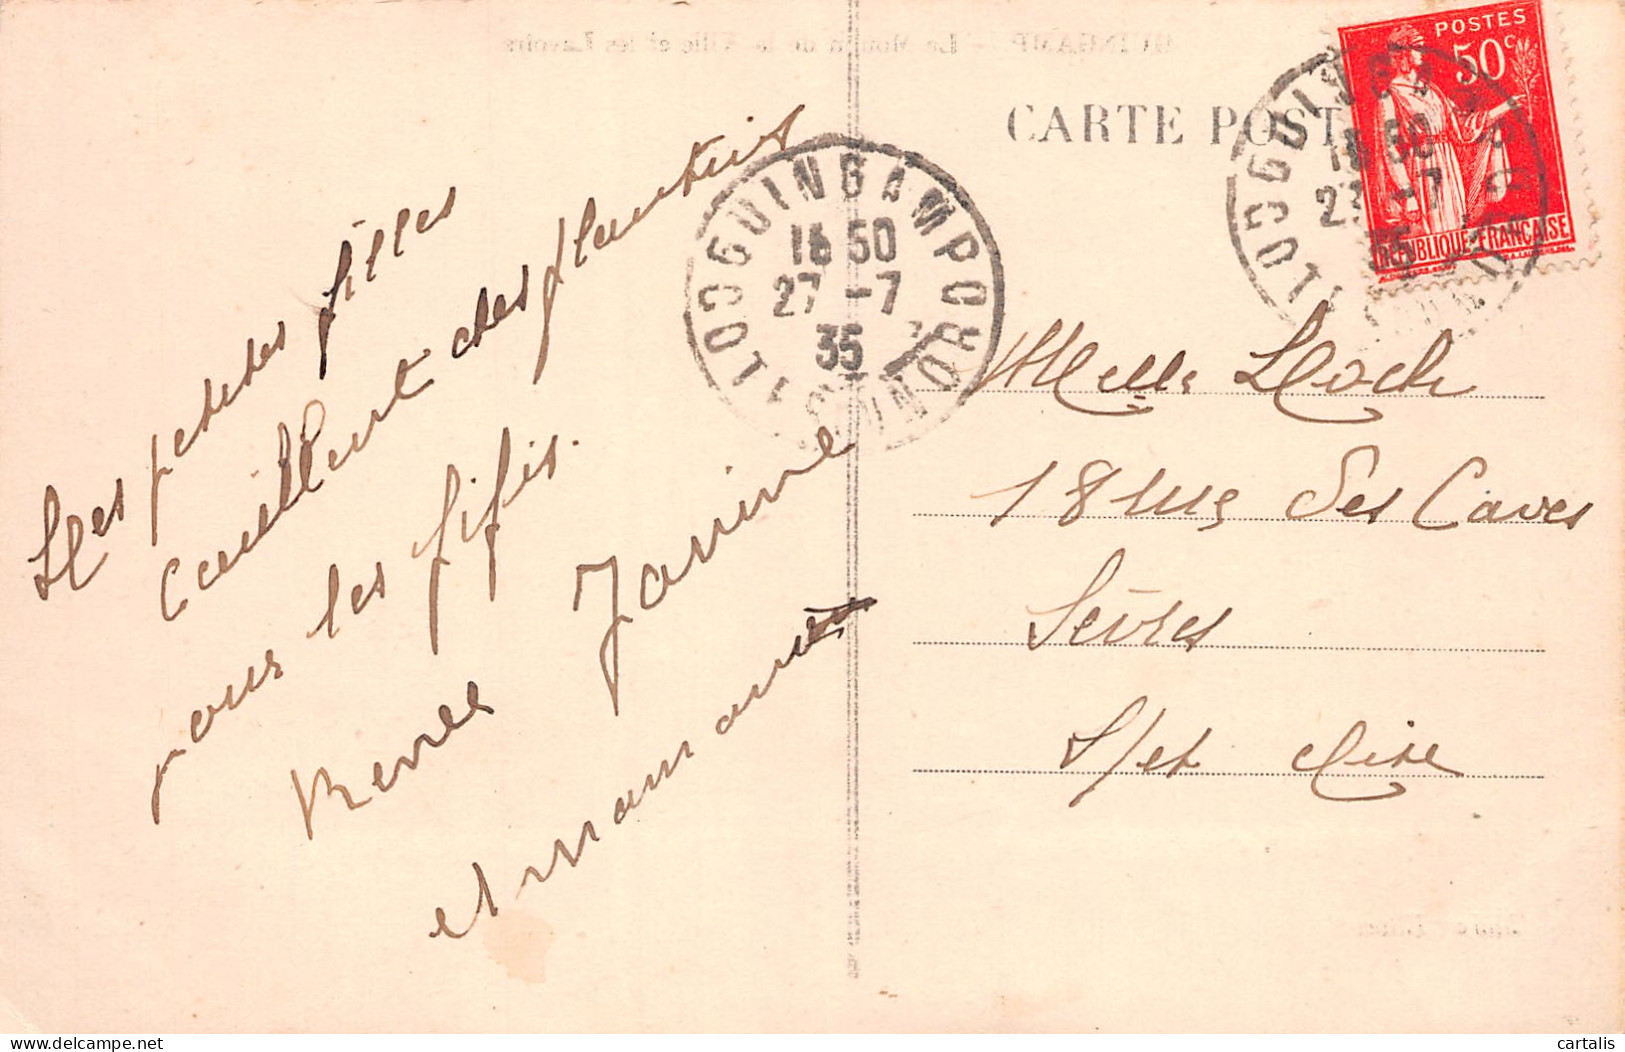 GUINGAMP. - Le Moulin de la Ville et les Lavoirs
CARTE POST
POSTES
50c
REPUBLIQUE FRANÇAISE
GUINGAMP
18 50
27 -7
35
COTES DU NORD
GUINGAMP
18 50
27 -7
35
Les petites filles
cueillent des
pour les fifis.
Renée Janine
et maman
Melle Hoch
18 rue des Caves
Sèvres
S/et Oise
cartalis